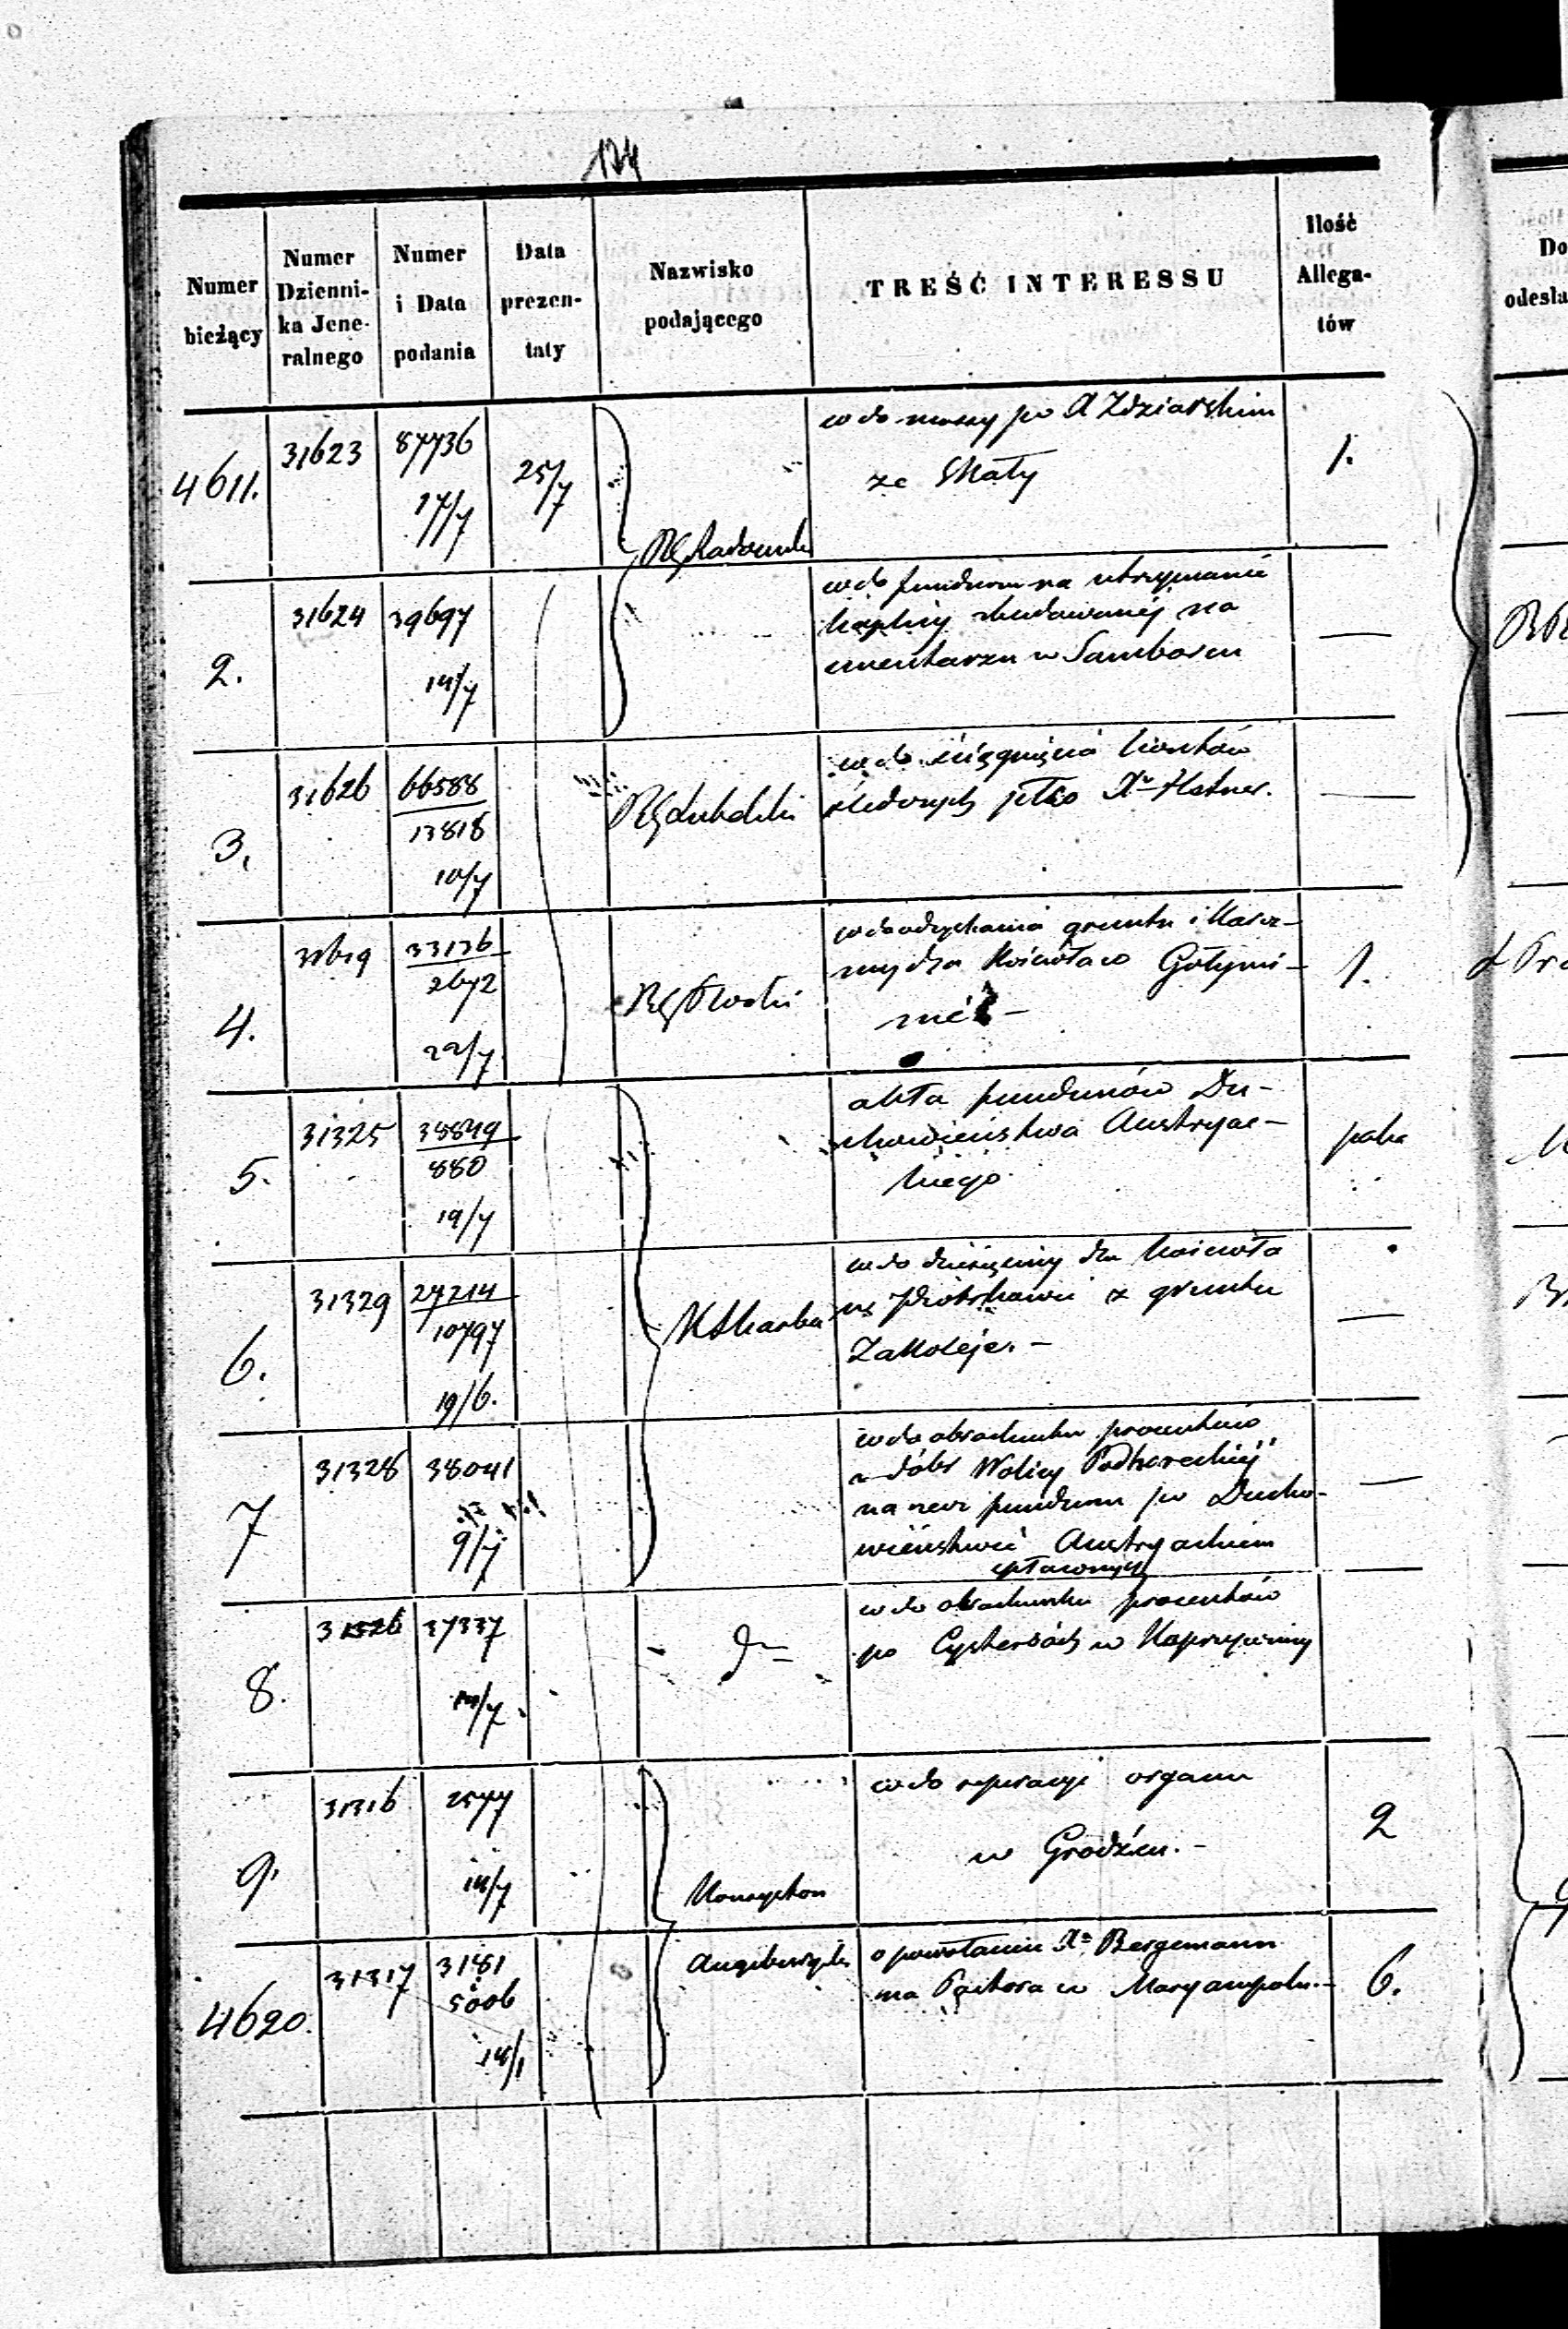 174
Numer bieżący
Numer Dzienni- ka Jene- ralnego
Numer i Data podania
Data prezen- taty
Nazwisko podającego
TREŚĆ INTERESSU
Ilość Allega- tów
Do odesła
4611.
31623
87736
17/7
25/7
w do massy po X Zdziarskim
ze Skały
1.
2.
31624
39697
14/7
w do funduszu na utrzymanie
kaplicy zbudowanéj na
cmentarzu w
—
3.
31626
66588
13818
10/7
RG Lubelski
w do ściągnięcia kosztów
—
4.
33136
2672
22/7
RG Płocki
w do odzyskania gruntu i Karcz-
my dla Kościoła w Gołymi-
nie –
1.
5.
31325
38849
880
19/7
akta funduszów Du-
chowieństwa Austryac-
kiego
6.
31329
27214
10797
19/6.
K Skarbu
w do dziesięciny dla Kościoła
z gruntu
Zakoleje. –
—
7
31328
38041
9/7
w do obrachunku procentów
z dóbr Wolicy
na rzecz funduszu po Ducho-
wieństwie Austryackiem
opłaconych
—
8.
31326
37337
14/7
dto
w do obrachunku procentów
po Cystersach w Koprzywnicy
9.
31316
2577
14/7
Konsystorz
w do reperacyi organu
w Grodźcu. –
2
4620.
31317
3181
5006
14/1
Augsburgski
o powołanie Xa Bergemann
na Pastora w Maryampolu. –
6.